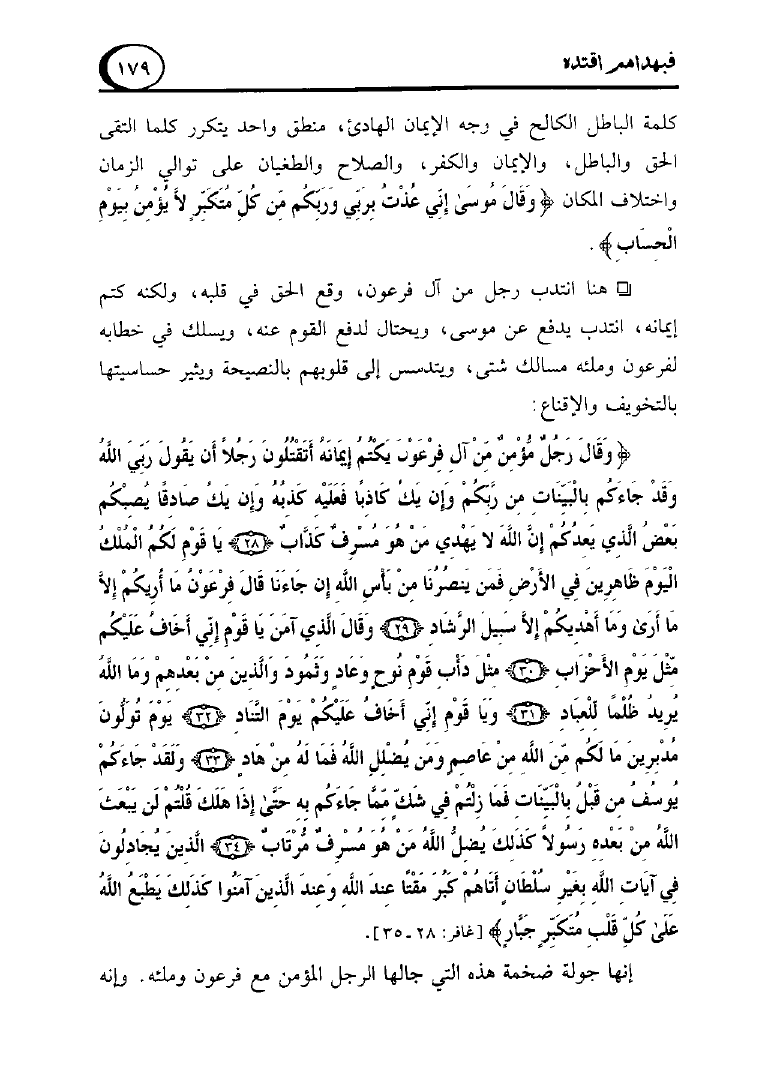 فبهداهم اقتده
١٧٩
كلمة الباطل الكالح في وجه الإيمان الهادئ، منطق واحد يتكرر كلما التقى
الحق والباطل، والإيمان والكفر، والصلاح والطغيان على توالي الزمان
واختلاف المكان ﴿ وَقَالَ مُوسَىٰ إِنِّي عُذْتُ بِرَبِّي وَرَبِّكُم مِّن كُلِّ مُتَكَبِّرٍ لاَّ يُؤْمِنُ بِيَوْمِ
الْحِسَابِ ﴾ .
❑ هنا انتدب رجل من آل فرعون، وقع الحق في قلبه، ولكنه كتم
إيمانه، انتدب يدفع عن موسى، ويحتال لدفع القوم عنه، ويسلك في خطابه
لفرعون وملئه مسالك شتى، ويتدسس إلى قلوبهم بالنصيحة ويثير حساسيتها
بالتخويف والإقناع:
﴿ وَقَالَ رَجُلٌ مُّؤْمِنٌ مِّنْ آلِ فِرْعَوْنَ يَكْتُمُ إِيمَانَهُ أَتَقْتُلُونَ رَجُلاً أَن يَقُولَ رَبِّيَ اللَّهُ
وَقَدْ جَاءَكُم بِالْبَيِّنَاتِ مِن رَّبِّكُمْ وَإِن يَكُ كَاذِبًا فَعَلَيْهِ كَذِبُهُ وَإِن يَكُ صَادِقًا يُصِبْكُم
بَعْضُ الَّذِي يَعِدُكُمْ إِنَّ اللَّهَ لا يَهْدِي مَنْ هُوَ مُسْرِفٌ كَذَّابٌ ﴿٢٨﴾ يَا قَوْمِ لَكُمُ الْمُلْكُ
الْيَوْمَ ظَاهِرِينَ فِي الأَرْضِ فَمَن يَنصُرُنَا مِنْ بَأْسِ اللَّهِ إِن جَاءَنَا قَالَ فِرْعَوْنُ مَا أُرِيكُمْ إِلاَّ
مَا أَرَىٰ وَمَا أَهْدِيكُمْ إِلاَّ سَبِيلَ الرَّشَادِ ﴿٢٩﴾ وَقَالَ الَّذِي آمَنَ يَا قَوْمِ إِنِّي أَخَافُ عَلَيْكُم
مِّثْلَ يَوْمِ الأَحْزَابِ ﴿٣٠﴾ مِثْلَ دَأْبِ قَوْمِ نُوحٍ وَعَادٍ وَثَمُودَ وَالَّذِينَ مِنْ بَعْدِهِمْ وَمَا اللَّهُ
يُرِيدُ ظُلْمًا لِّلْعِبَادِ ﴿٣١﴾ وَيَا قَوْمِ إِنِّي أَخَافُ عَلَيْكُمْ يَوْمَ التَّنَادِ ﴿٣٢﴾ يَوْمَ تُوَلُّونَ
مُدْبِرِينَ مَا لَكُم مِّنَ اللَّهِ مِنْ عَاصِمٍ وَمَن يُضْلِلِ اللَّهُ فَمَا لَهُ مِنْ هَادٍ ﴿٣٣﴾ وَلَقَدْ جَاءَكُمْ
يُوسُفُ مِن قَبْلُ بِالْبَيِّنَاتِ فَمَا زِلْتُمْ فِي شَكٍّ مِّمَّا جَاءَكُم بِهِ حَتَّىٰ إِذَا هَلَكَ قُلْتُمْ لَن يَبْعَثَ
اللَّهُ مِنْ بَعْدِهِ رَسُولاً كَذَلِكَ يُضِلُّ اللَّهُ مَنْ هُوَ مُسْرِفٌ مُّرْتَابٌ ﴿٣٤﴾ الَّذِينَ يُجَادِلُونَ
فِي آيَاتِ اللَّهِ بِغَيْرِ سُلْطَانٍ أَتَاهُمْ كَبُرَ مَقْتًا عِندَ اللَّهِ وَعِندَ الَّذِينَ آمَنُوا كَذَلِكَ يَطْبَعُ اللَّهُ
عَلَىٰ كُلِّ قَلْبِ مُتَكَبِّرٍ جَبَّارٍ ﴾ [غافر: ٢٨ ـ ٣٥].
إنها جولة ضخمة هذه التي جالها الرجل المؤمن مع فرعون وملئه. وإنه